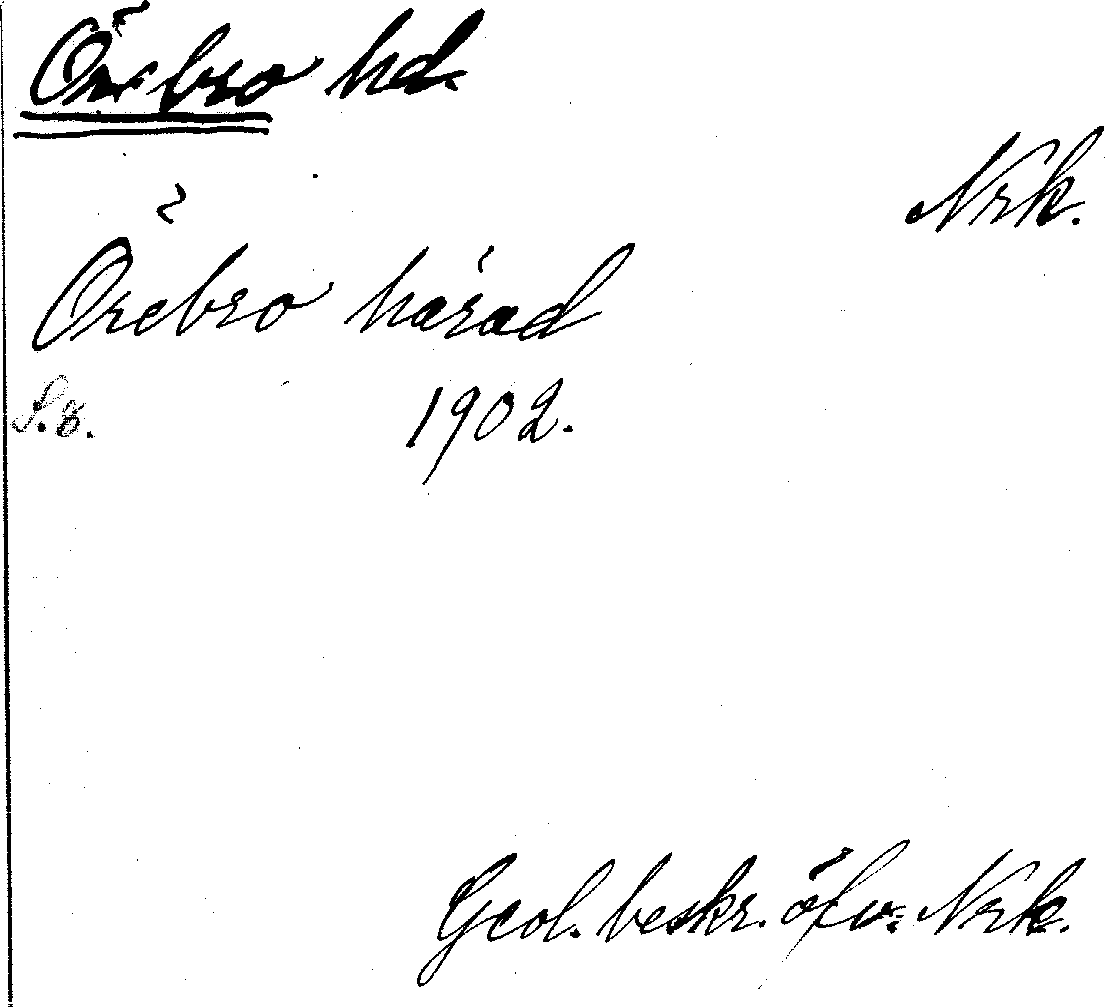 Örebro hd.
Nrk.
Örebro härad
S. 8.
1902.
Geol. beskr. öfv. Nrk.